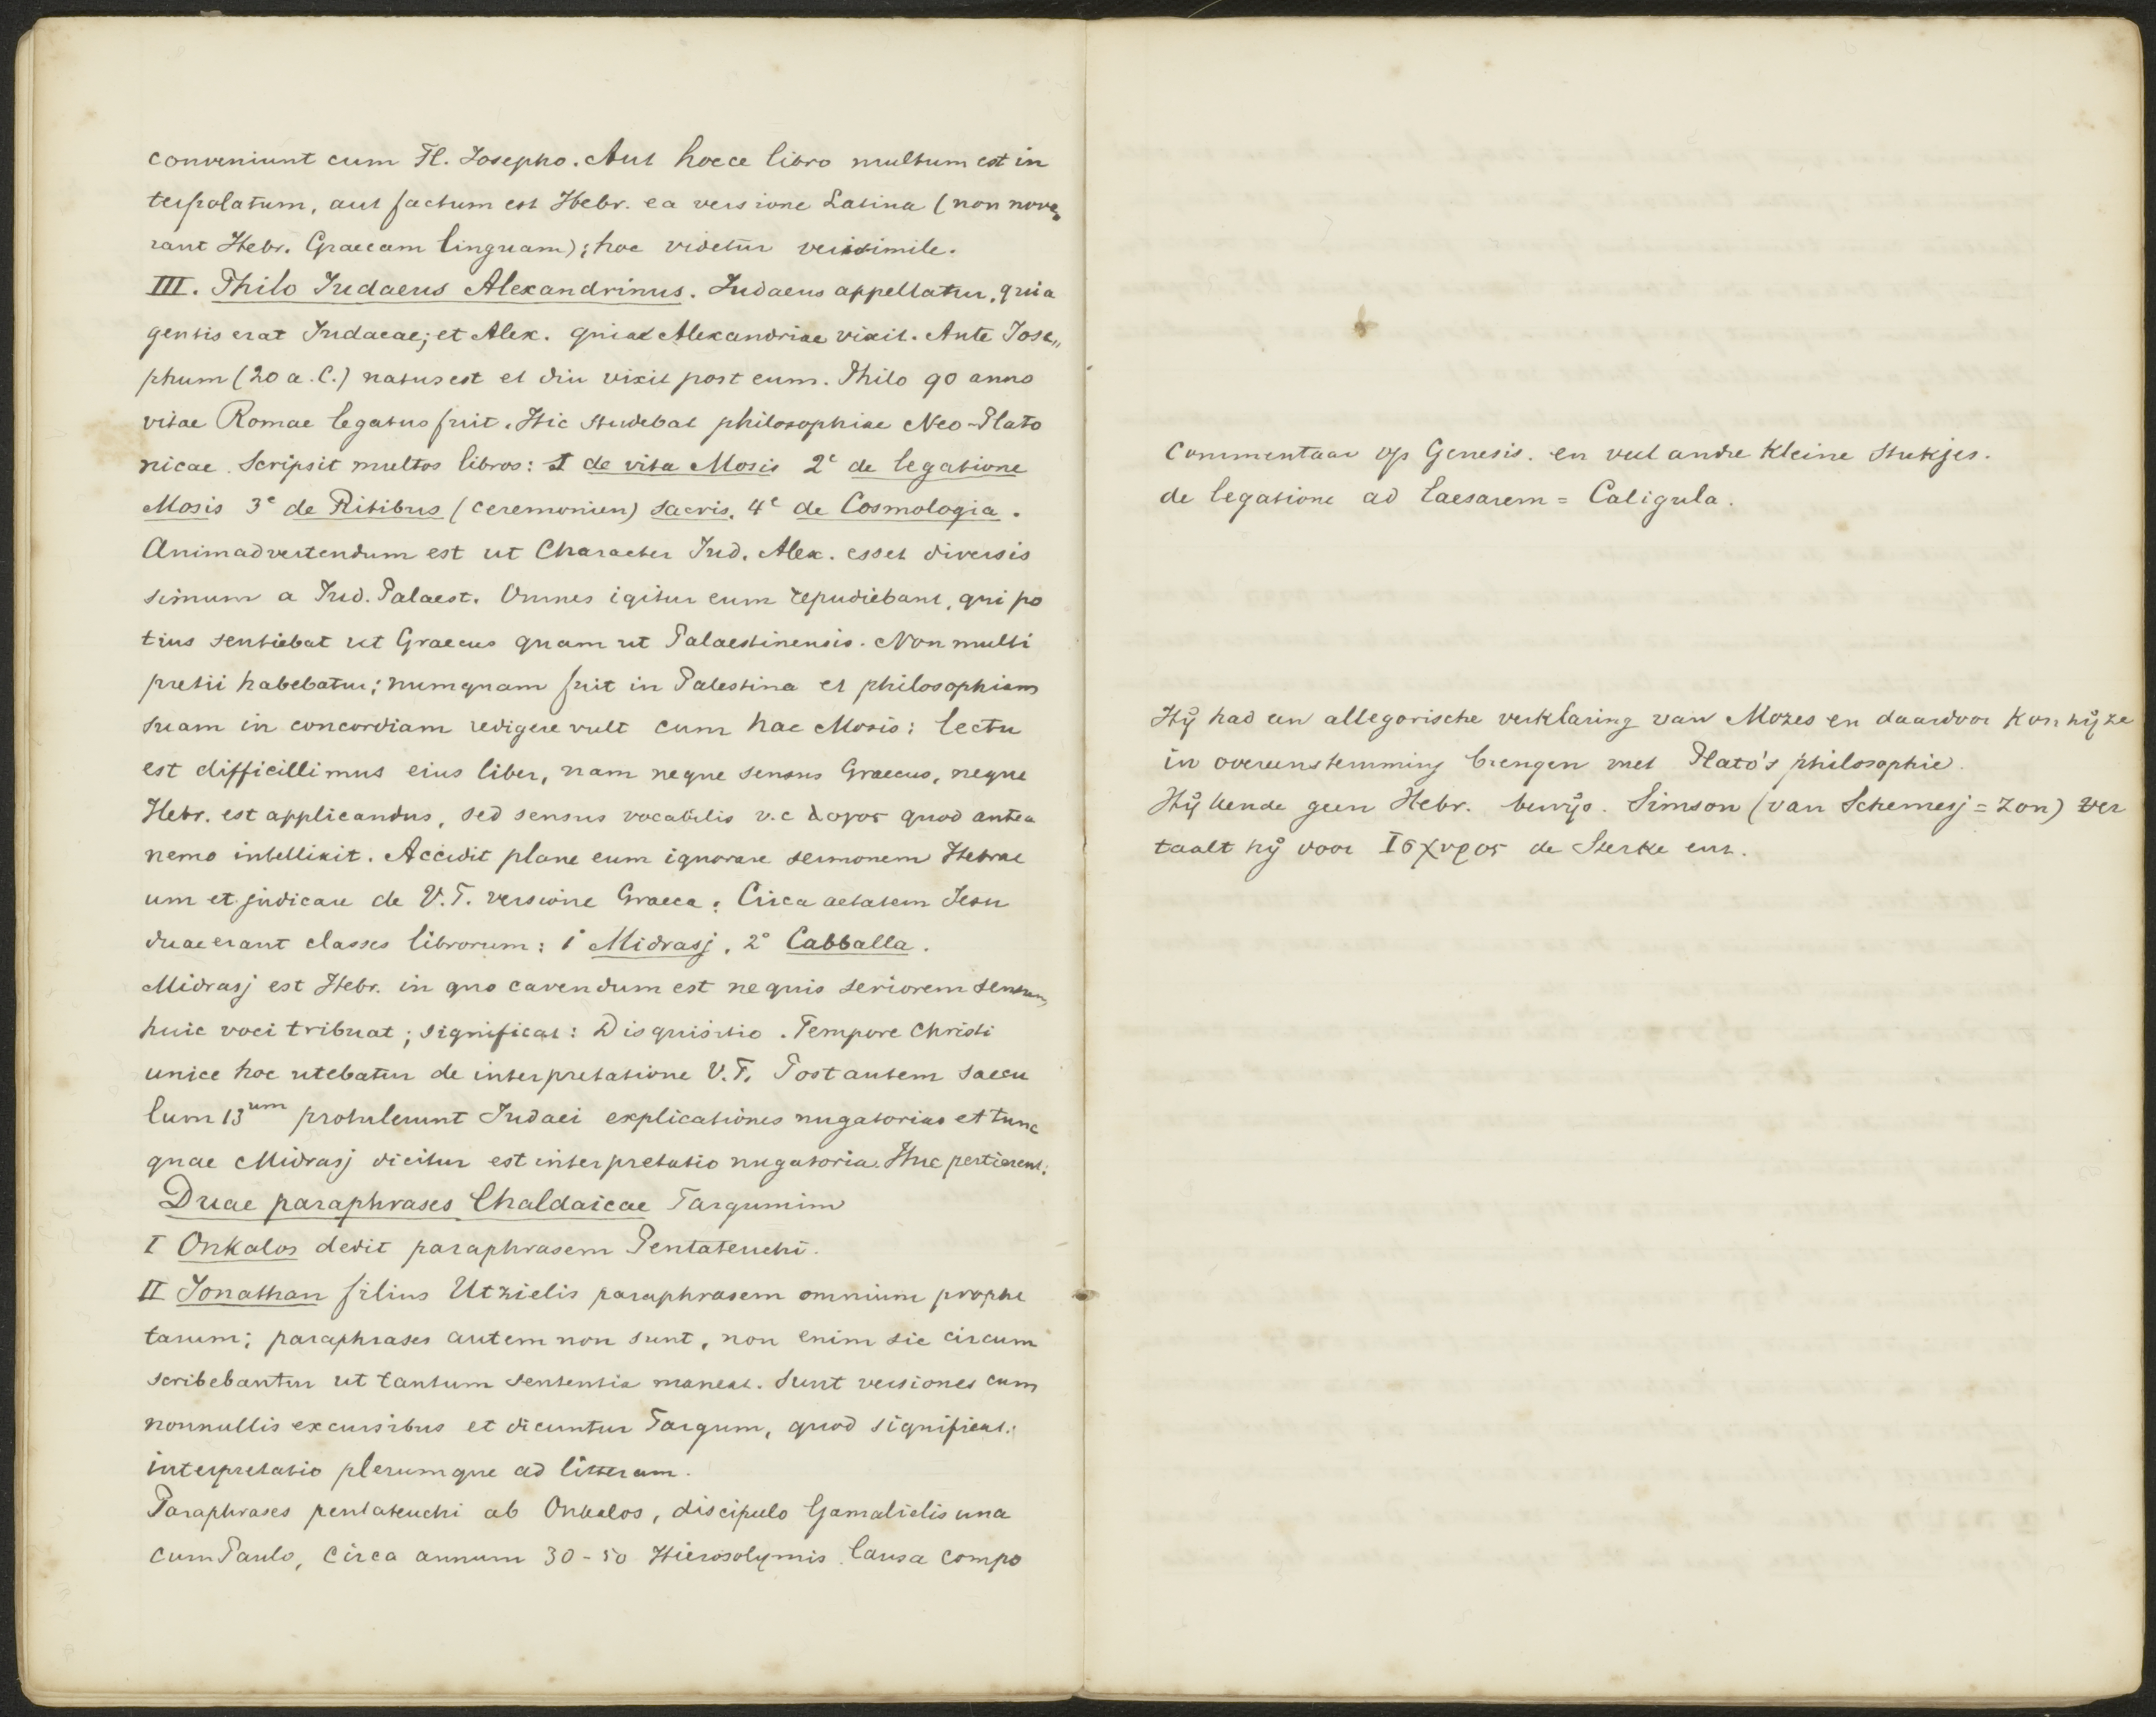 conveniunt cum Fl. Josepho. Aut hocce libro multum est in
terpolatum, aut factum est Hebr. ea versione Latina (non nove„
rant Hebr. Graecam linguam); hoc videtur verisimile.
III. Philo Judaeus Alexandrinus. Judaeus appellatur, quia
gentis erat Judaeae; et Alex. quia Alexandriae vixit. Ante Jose„
phum (20 a. C.) natus est et diu vixit post eum. Philo 90 anno
vitae Romae legatus fuit. Hic studebat philosophiae Neo-Plato
nicae. Scripsit multos libros: I de vita Mosis 2e de legatione
Mosis 3e de Ritibus (ceremonien) sacris. 4e de Cosmologia.
Animadvertendum est ut Character Jud. Alex. esset diversis
simum a Jud. Palaest. Omnes igitur eum repudiebant, qui po
tius sentiebat ut Graecus quam ut Palaestinensis. Non multi
pretii habebatur; numquam fuit in Palestina et philosophiam
suam in concordiam redigere vult cum hac Mosis: lectu
est difficillimus eius liber, nam neque sensus Graecus, neque
Hebr. est applicandus, sed sensus vocabilis v.c λογος quod antea
nemo intellixit. Accedit plane eum ignorare sermonem Hebrae
um et judicare de V.T. versione Graeca. Circa aetatem Jesu
duae erant classes librorum: 1° Midrasj, 2° Cabballa.
Midrasj est Hebr. in quo cavendum est ne quis seriorem sensum
huic voci tribuat; significat: Disquisitio. Tempore Christi
unice hoc utebatur de interpretatione V.T. Post autem saecu
lum 13um protulerunt Judaei explicationes nugatorias et tunc
quae Midrasj dicitur est interpretatio nugatoria. Huc pertinent:
Duae paraphrases Chaldaicae Targumim
I Onkalos dedit paraphrasem Pentateuchi.
II Jonathan filius Utzielis paraphrasem omnium prophe
tarum; paraphrases autem non sunt, non enim sic circum
scribebantur ut tantum sententia maneat. Sunt versiones cum
nonnullis excursibus et dicuntur Targum, quod significat:
interpretatio plerumque ad litteram.
Paraphrases pentateuchi ab Onkelos, discipulo Gamalielis una
cum Paulo, circa annum 30-50 Hierosolymis. Causa compo
Commentaar op Genesis. en veel andre kleine stukjes.
de legatione ad Caesarem = Caligula.
Hij had een allegorische verklaring van Mozes en daardoor kon hij ze
in overeenstemming brengen met Plato's philosophie.
Hij kende geen Hebr. bewijs. Simson (van Schemesj = zon) ver
taalt hij door Ισχυρος de Sterke enz.